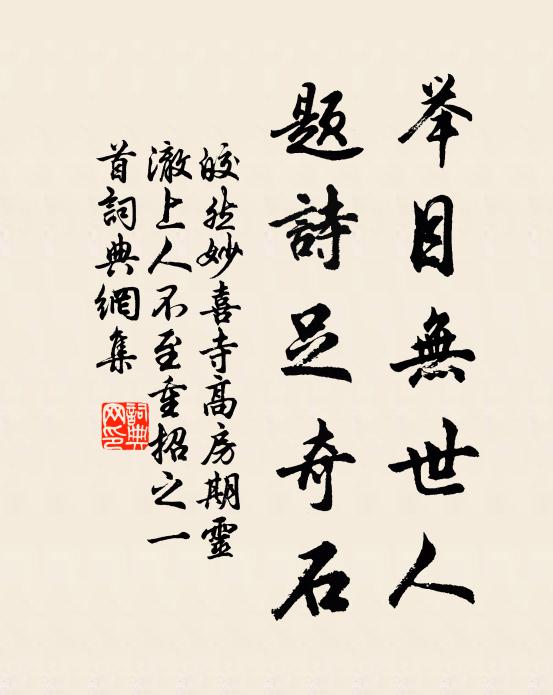 举目無世人
题詩足奇石
皎然妙喜寺高房期靈
澈上人不至重招之一
首詞典網集
詞典网印